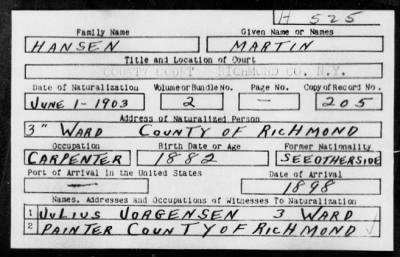 H 525
Family Name Given Name or Names
HANSEN MARTIN
Title and Location of Court
COUNTY COURT RICHMOND CO. N.Y.
Date of Naturalization Volume or Bundle No. Page No. Copy of Record No.
JUNE 1-1903 2 — 205
Address of Naturalized Person
3" WARD COUNTY OF RICHMOND
Occupation Birth Date or Age Former Nationality
CARPENTER 1882 SEE OTHER SIDE
Port of Arrival in the United States Date of Arrival
— 1898
Names, Addresses and Occupations of Witnesses To Naturalization
1 JULIUS JORGENSEN 3 WARD
2 PAINTER COUNTY OF RICHMOND